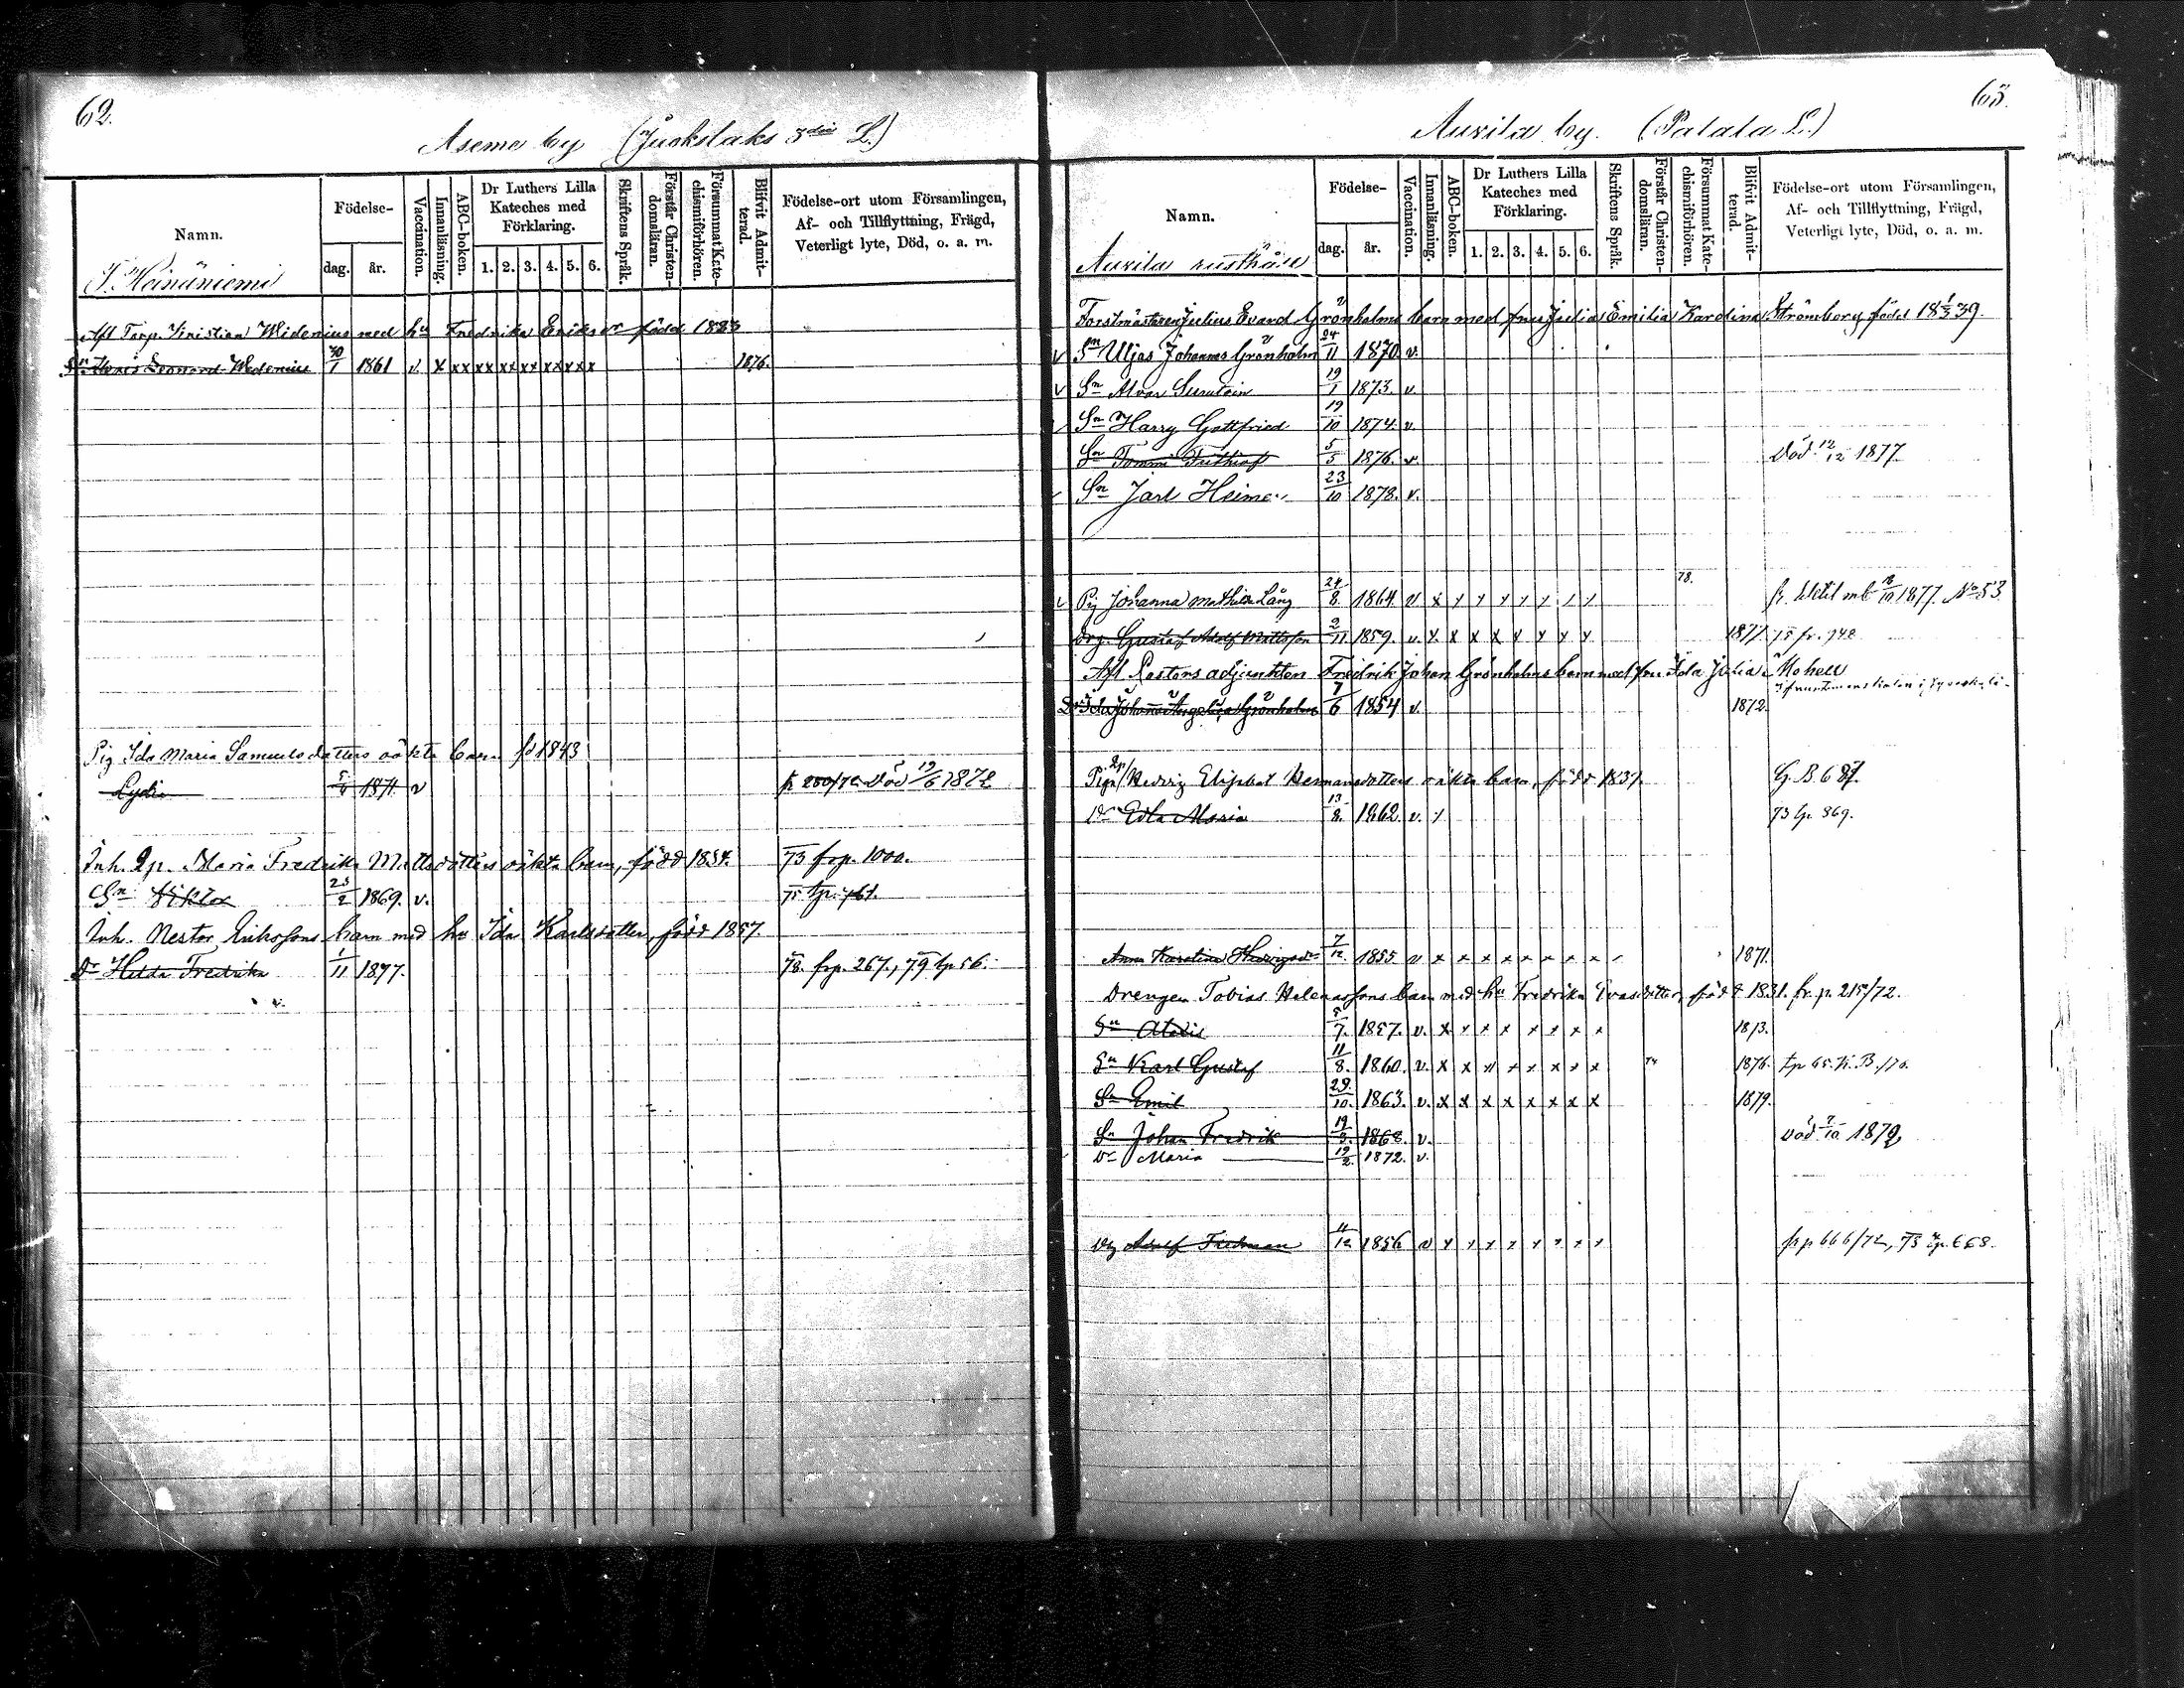 62.
Aseme by (Juokslaks 3die L.)
Namn.
Födelse-
dag.
år.
Vaccination.
Innanläsning.
ABC-boken.
Dr Luthers Lilla Kateches med Förklaring.
1. 2. 3. 4. 5. 6.
Skriftens Språk.
Förstår Christendomsläran.
Försummat Katechismiförhören.
Blifvit Admitterad.
Födelse-ort utom Församlingen, Af- och Tillflyttning, Frägd, Veterligt lyte, Död, o. a. m.
T. Heinäniemi
Afl Torp. Kristian Widenius med hu Fredrika Eriksdr född 1823
Sn Alexis Leonard Widenius 30/1 1861 v. x xx xx xx xx xx xx 1876.
Pig Ida Maria Samuelsdotters oäkta barn fd 1843
Lydia 5/4 1871 v fr 280/72 Död 19/6 1872
Inh. Qp. Maria Fredrika Mattsdotters oäkta barn, född 1834. 73 frp. 1000.
Sn Viktor 25/2 1869. v. 75 tp. 761.
Inh. Nestor Erikssons barn med hu Ida Karlsdotter, född 1857.
Dr Hilda Fredrika 1/11 1877. 78. frp. 267., 79 tp 56.
63.
Auvila by. (Patala L.)
Namn.
Födelse-
dag.
år.
Vaccination.
Innanläsning.
ABC-boken.
Dr Luthers Lilla Kateches med Förklaring.
1. 2. 3. 4. 5. 6.
Skriftens Språk.
Förstår Christendomsläran.
Försummat Katechismiförhören.
Blifvit Admitterad.
Födelse-ort utom Församlingen, Af- och Tillflyttning, Frägd, Veterligt lyte, Död, o. a. m.
Auvila rusthåll
Forstmästaren Julius Evard Grönholms barn med fru Julia Emilia Karolina Strömberg född 18 1/3 39.
v Sn Uljas Johannes Grönholm 24/11 1870. v.
v Sn Alvar 19/1 1873. v.
Sn Harry Gottfried 19/10 1874. v.
Sn Tommi Frithiof 5/5 1876. v. död 12/12 1877.
Sn Jarl Heimer 23/10 1878. v.
Pig Johanna Mathilda Lång 24/8. 1864. v x x x x x x x x 78. 1877. No 53.
Drg. Gustaf Adolf Mattsson 2/11. 1859. v. x x x x x x x x 1877
Afl Pastors adjunkten Fredrik Johan Grönholms barn med fru Ida Julia Mohell
Dr Ida Johanna Angelica Grönholm 7/6 1854 v. 1872.
Pigan Qp/ Hedvig Elisabet Hermansdotters oäkta barn, född 1837. G. B 687.
Dr Edla Maria 13/8. 1862. v. x 73 tp. 869.
Anna Karolina Hedvigsdr 7/12. 1855 v x x x x x x x x 1871.
Drengen Tobias Helenassons barn med hu Fredrika Evasdotter, född 1831. fr. p. 215/72.
Sn Alexis 5/7. 1857. v. x x x x x x x x 1873.
Sn Karl Gustaf 11/8. 1860. v. x x x x x x x x 1876. tp 65. K. B. /76.
Sn Emil 29/10. 1863. v. x x x x x x x x 1879.
Sn Johan Fredrik 19/3. 1868. v. död 2/10 1872,
Dr Maria 19/2. 1872. v.
Dg Adolf Fredman 11/12 1856 v x x x x x x x x frp 666/72, 73 tp. 668.